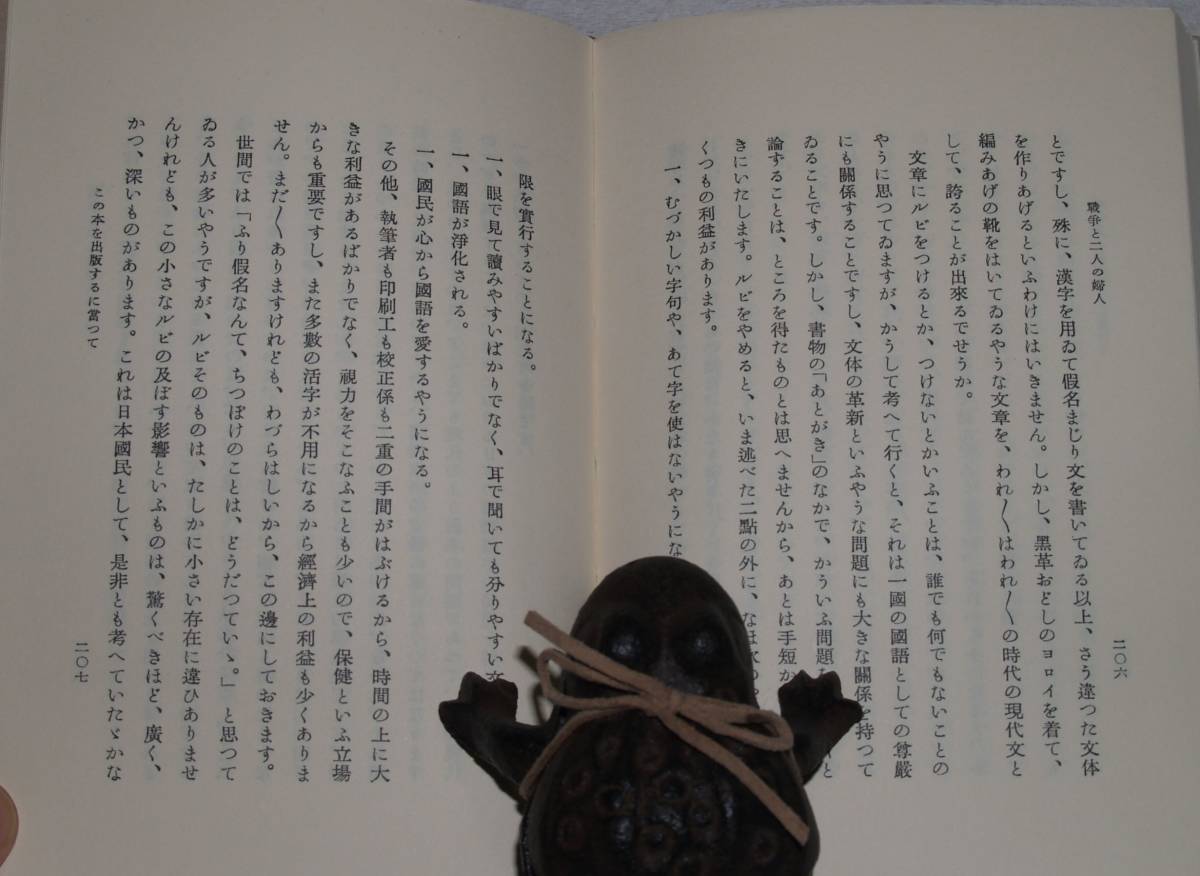 戰爭と二人の婦人
とですし、殊に、漢字を用ゐて假名まじり文を書いてゐる以上、さう違つた文体
を作りあげるといふわけにはいきません。しかし、黑革おどしのヨロイを着て、
編みあげの靴をはいてゐるやうな文章を、われ〱はわれ〱の時代の現代文と
して、誇ることが出來るでせうか。
文章にルビをつけるとか、つけないとかいふことは、誰でも何でもないことの
やうに思つてゐますが、かうして考へて行くと、それは一國の國語としての尊嚴
にも關係することですし、文体の革新といふやうな問題にも大きな關係を持つて
ゐることです。しかし、書物の「あとがき」のなかで、かういふ問題を
論ずることは、ところを得たものとは思へませんから、あとは手短か
きにいたします。ルビをやめると、いま述べた二點の外に、なほ
くつもの利益があります。
一、むづかしい字句や、あて字を使はないやうにな
二〇六
限を實行することになる。
一、眼で見て讀みやすいばかりでなく、耳で聞いても分りやすい
一、國語が淨化される。
一、國民が心から國語を愛するやうになる。
その他、執筆者も印刷工も校正係も二重の手間がはぶけるから、時間の上に大
きな利益があるばかりでなく、視力をそこなふことも少いので、保健といふ立場
からも重要ですし、また多數の活字が不用になるから經濟上の利益も少くありま
せん。まだ〱ありますけれども、わづらはしいから、この邊にしておきます。
世間では「ふり假名なんて、ちつぽけのことは、どうだつていゝ。」と思つて
ゐる人が多いやうですが、ルビそのものは、たしかに小さい存在に違ひありませ
んけれども、この小さなルビの及ぼす影響といふものは、驚くべきほど、廣く、
かつ、深いものがあります。これは日本國民として、是非とも考へていたゞかな
この本を出版するに當つて
二〇七